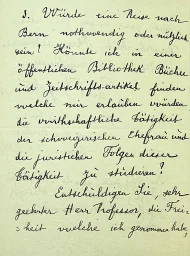 3. Würde eine Reise nach
Bern nothwendig oder nützlich
sein? Könnte ich in einer
öffentlichen Bibliothek Bücher
und Zeitschriftsartikel finden
welche mir erlauben würden
die wirthschaftliche Tätigkeit
der schweizerischen Ehefrau und
die juristischen Folgen dieser
Tätigkeit zu studieren?
Entschuldigen Sie, sehr
geehrter Herr Professor, die Frei-
heit welche ich genommen habe,